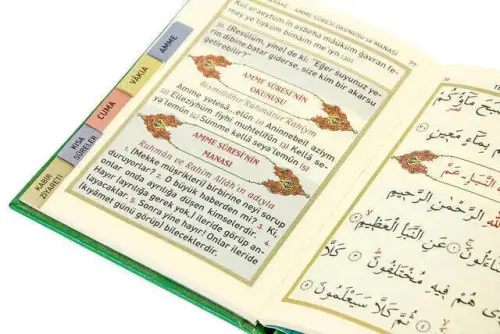 AMME
VÂKIA
CUMA
KISA
SÛRELER
KABİR
ZİYARETİ
AMME SÛRESİ OKUNUŞU ve MANASI
Kul eraeytüm in asbeha mâüküm ğavran fe-
mey ye'tîyküm bimâim me'ıyn
(Resûlüm, yine) de ki: "Eğer suyunuz ye-
rin dibine batar giderse, size kim bir akarsu
getirebilir?"
AMME SÛRESİ'NİN
OKUNUŞU
Bismillâhir Rahmânir Rahıym
Amme yetesâ...elûn Aninnebeil azıym
Elleziyhüm fiyhi muhtelifûn Kellâ se-
ya'lemûn Sümme kellâ seya'lemûn
AMME SÛRESİ'NİN
MANASI
Rahmân ve Rahîm Allâh'ın adıyla
1. (Mekke müşrikleri) birbirine neyi sorup
duruyorlar? 2. O büyük haberden mi? 3. Ki,
onlar onda ayrılığa düşen kimselerdir. 4.
Hayır, (ayrılığa gerek yok,) ileride görüp an-
layacaklar. 5. Sonra yine hayır! Onlar ileride
(kıyâmet günü görüp) bileceklerdir.
بِمَاءٍ مَعِينٍ
الرَّحْمٰنِ الرَّحِيمِ
عَنِ النَّبَاِ الْعَظِيمِ
هُمْ فِيهِ مُخْتَلِفُونَ كَلَّا
ثُمَّ كَلَّا سَيَعْلَمُونَ